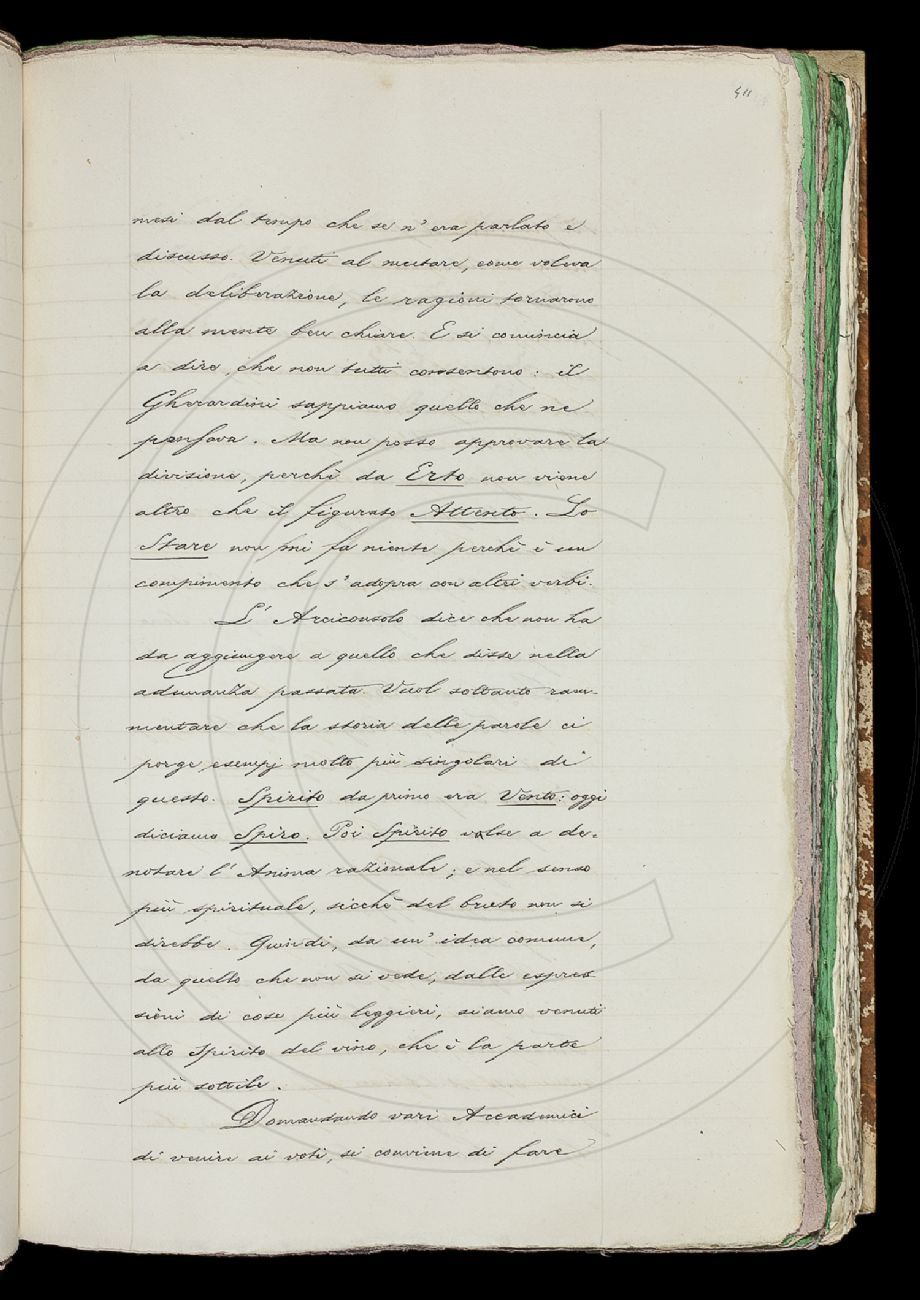 411
mesi dal tempo che se n'era parlato e
discusso. Venuti al mutare, come voleva
la deliberazione, le ragioni tornarono
alla mente ben chiare. E si comincia
a dire, che non tutti consentono: il
Gherardini sappiamo quello che ne
pensava. Ma non posso approvare la
divisione, perchè da Erto non viene
altro che il figurato Attento. Lo
Stare non mi fa niente perchè è un
compimento che s'adopra con altri verbi.
L'Arciconsolo dice che non ha
da aggiungere a quello che disse nella
adunanza passata. Vuol soltanto ram-
mentare che la storia delle parole ci
porge esempj molto più singolari di
questo. Spirito da primo era Vento: oggi
diciamo Spiro. Poi Spirito volse a de-
notare l'Anima razionale; e nel senso
più spirituale, sicchè del bruto non si
direbbe. Quindi, da un'idea comune,
da quello che non si vede, dalle espres
sioni di cose più leggieri, siamo venuti
allo Spirito del vino, che è la parte
più sottile.
Domandando vari Accademici
di venire ai voti, si conviene di fare